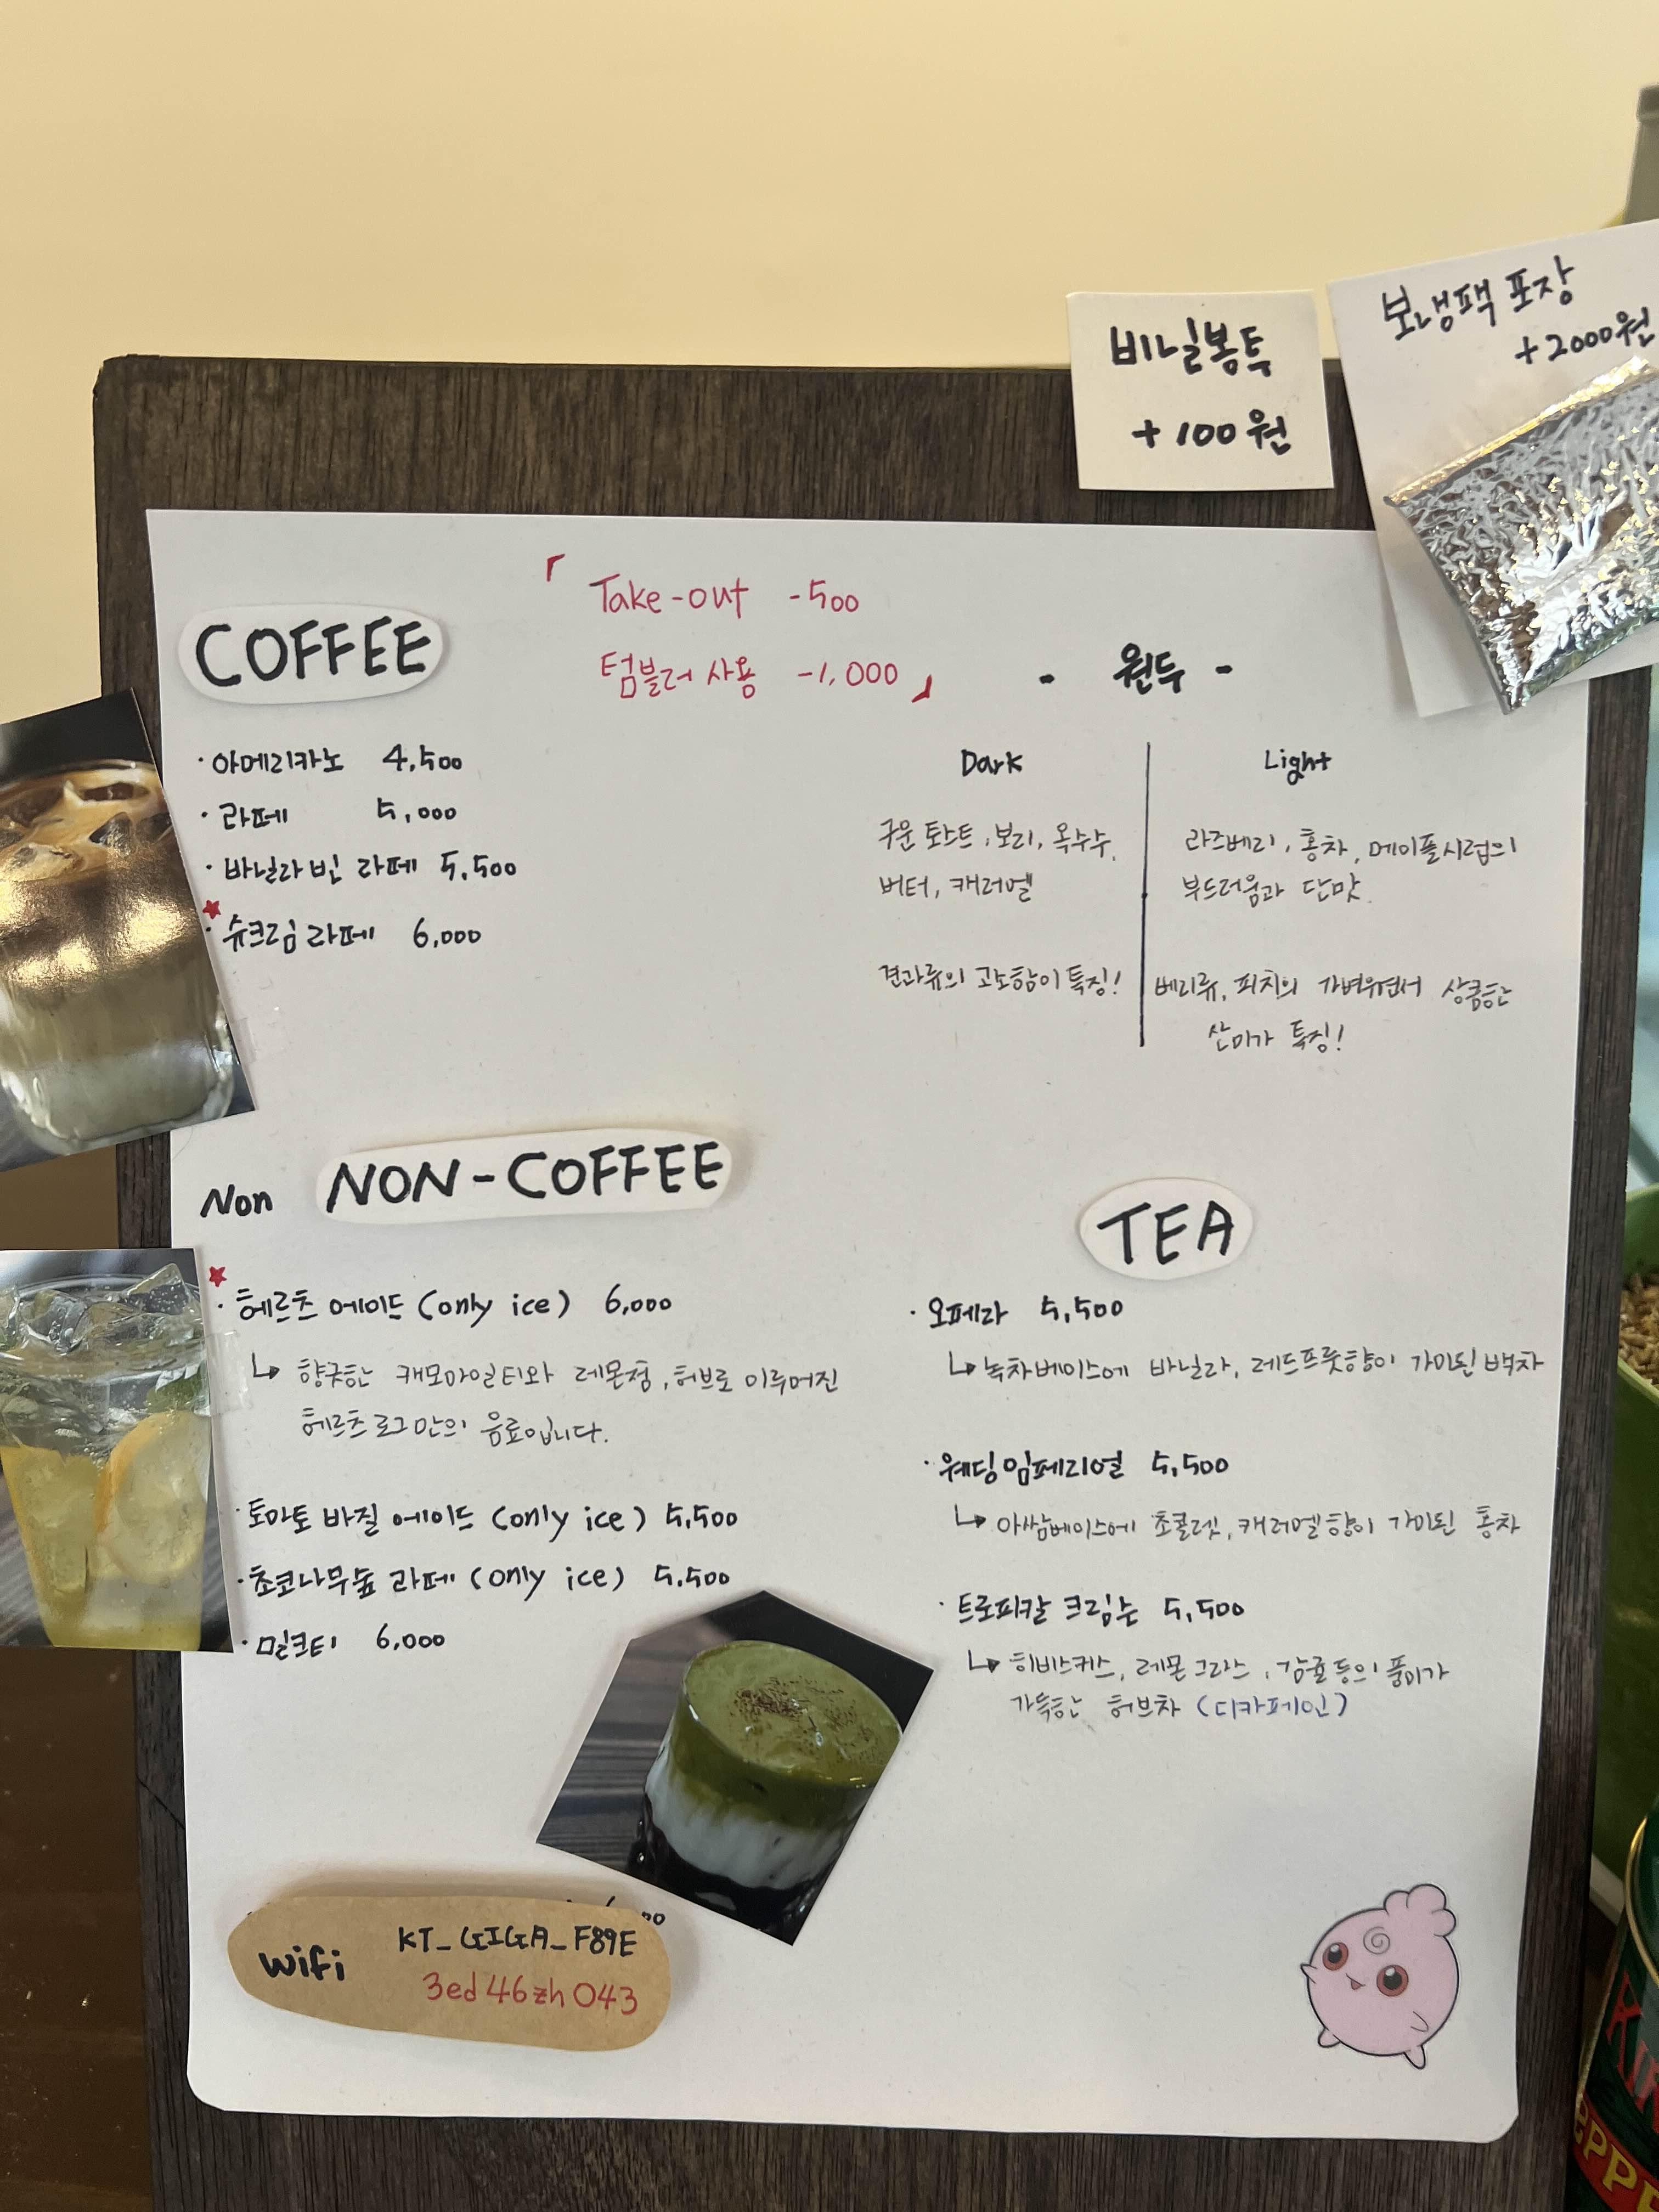 비닐봉투
+100원
보냉팩 포장
+2000원
「 Take-out -500
텀블러 사용 -1,000 」
COFFEE
· 아메리카노 4,500
· 라떼 5,000
· 바닐라빈 라떼 5,500
· 슈크림라떼 6,000
- 원두 -
Dark
구운 토스트, 보리, 옥수수,
버터, 캐러멜
견과류의 고소함이 특징!
Light
라즈베리, 홍차, 메이플시럽의
부드러움과 단맛.
베리류, 피치의 가벼우면서 상큼한
산미가 특징!
Non NON-COFFEE
· 헤르츠 에이드 (only ice) 6,000
↳ 향긋한 캐모마일티와 레몬청, 허브로 이루어진
헤르츠로그만의 음료입니다.
· 토마토 바질 에이드 (only ice) 5,500
· 초코나무숲 라떼 (only ice) 5,500
· 밀크티 6,000
TEA
· 오페라 5,500
↳ 녹차베이스에 바닐라, 레드프룻향이 가미된 백차
· 웨딩임페리얼 5,500
↳ 아쌈베이스에 초콜렛, 캐러멜향이 가미된 홍차
· 트로피칼 크림슨 5,500
↳ 히비스커스, 레몬그라스, 감귤등의 풍미가
가득한 허브차 (디카페인)
wifi KT_GIGA_F89E
3ed46zh043